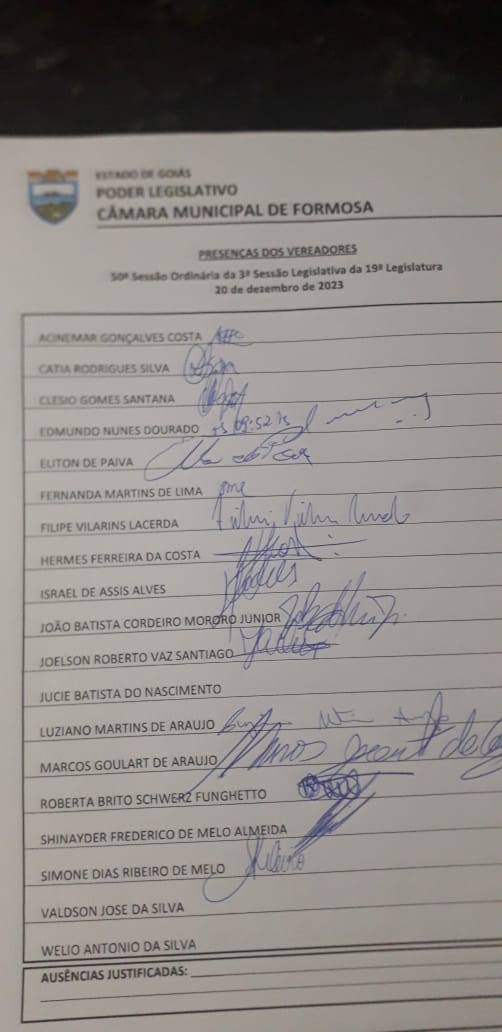 ESTADO DE GOIÁS
PODER LEGISLATIVO
CÂMARA MUNICIPAL DE FORMOSA
PRESENÇAS DOS VEREADORES
50ª Sessão Ordinária da 3ª Sessão Legislativa da 19ª Legislatura
20 de dezembro de 2023
ACINEMAR GONÇALVES COSTA
CATIA RODRIGUES SILVA
CLESIO GOMES SANTANA
EDMUNDO NUNES DOURADO 09:52
ELITON DE PAIVA
FERNANDA MARTINS DE LIMA
FILIPE VILARINS LACERDA
HERMES FERREIRA DA COSTA
ISRAEL DE ASSIS ALVES
JOÃO BATISTA CORDEIRO MORORO JUNIOR
JOELSON ROBERTO VAZ SANTIAGO
JUCIE BATISTA DO NASCIMENTO
LUZIANO MARTINS DE ARAUJO
MARCOS GOULART DE ARAUJO
ROBERTA BRITO SCHWERZ FUNGHETTO
SHINAYDER FREDERICO DE MELO ALMEIDA
SIMONE DIAS RIBEIRO DE MELO
VALDSON JOSE DA SILVA
WELIO ANTONIO DA SILVA
AUSÊNCIAS JUSTIFICADAS: